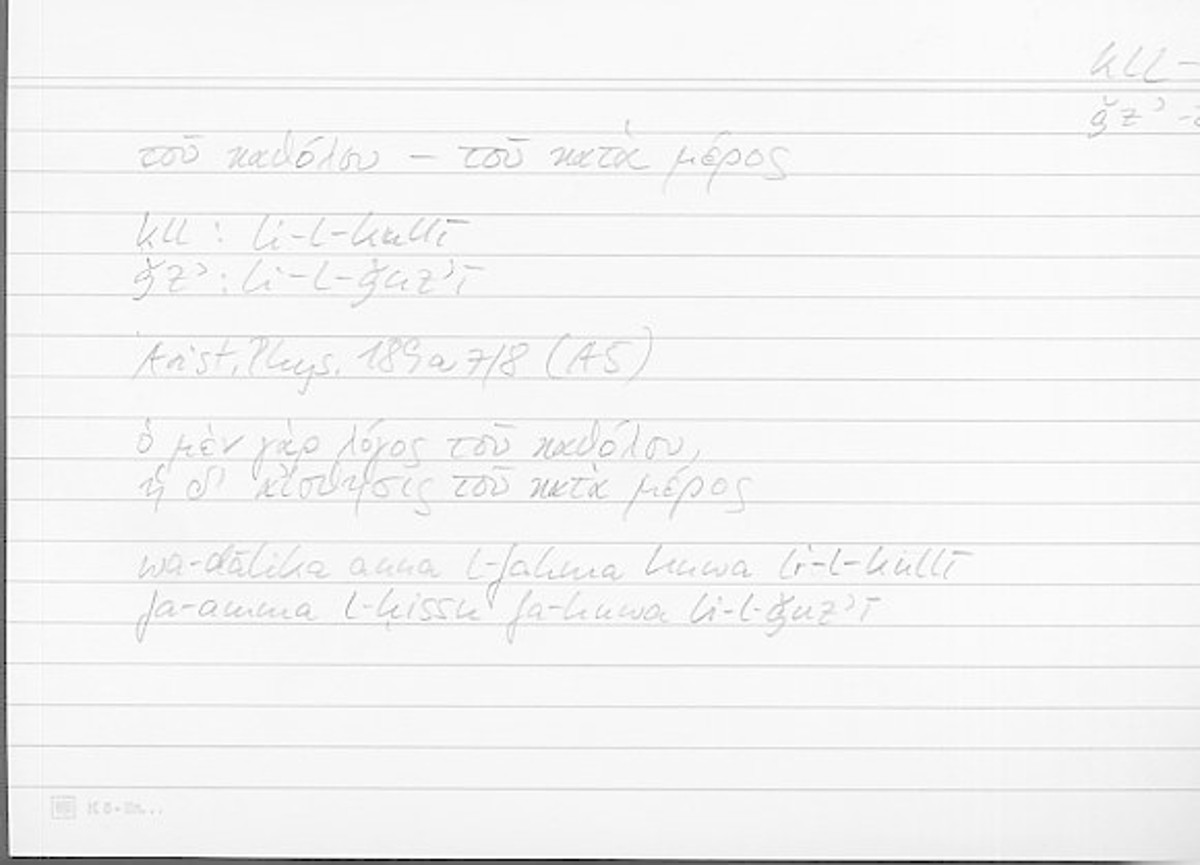 kll -
ǧzʾ -
τοῦ καθόλου – τοῦ κατὰ μέρος
kll : li-l-kullī
ǧzʾ : li-l-ǧuzʾī
Arist. Phys. 189a7/8 (A5)
ὁ μὲν γὰρ λόγος τοῦ καθόλου,
ἡ δ' αἴσθησις τοῦ κατὰ μέρος
wa-ḏālika anna l-fahma huwa li-l-kullī
fa-amma l-ḥissu fa-huwa li-l-ǧuzʾī